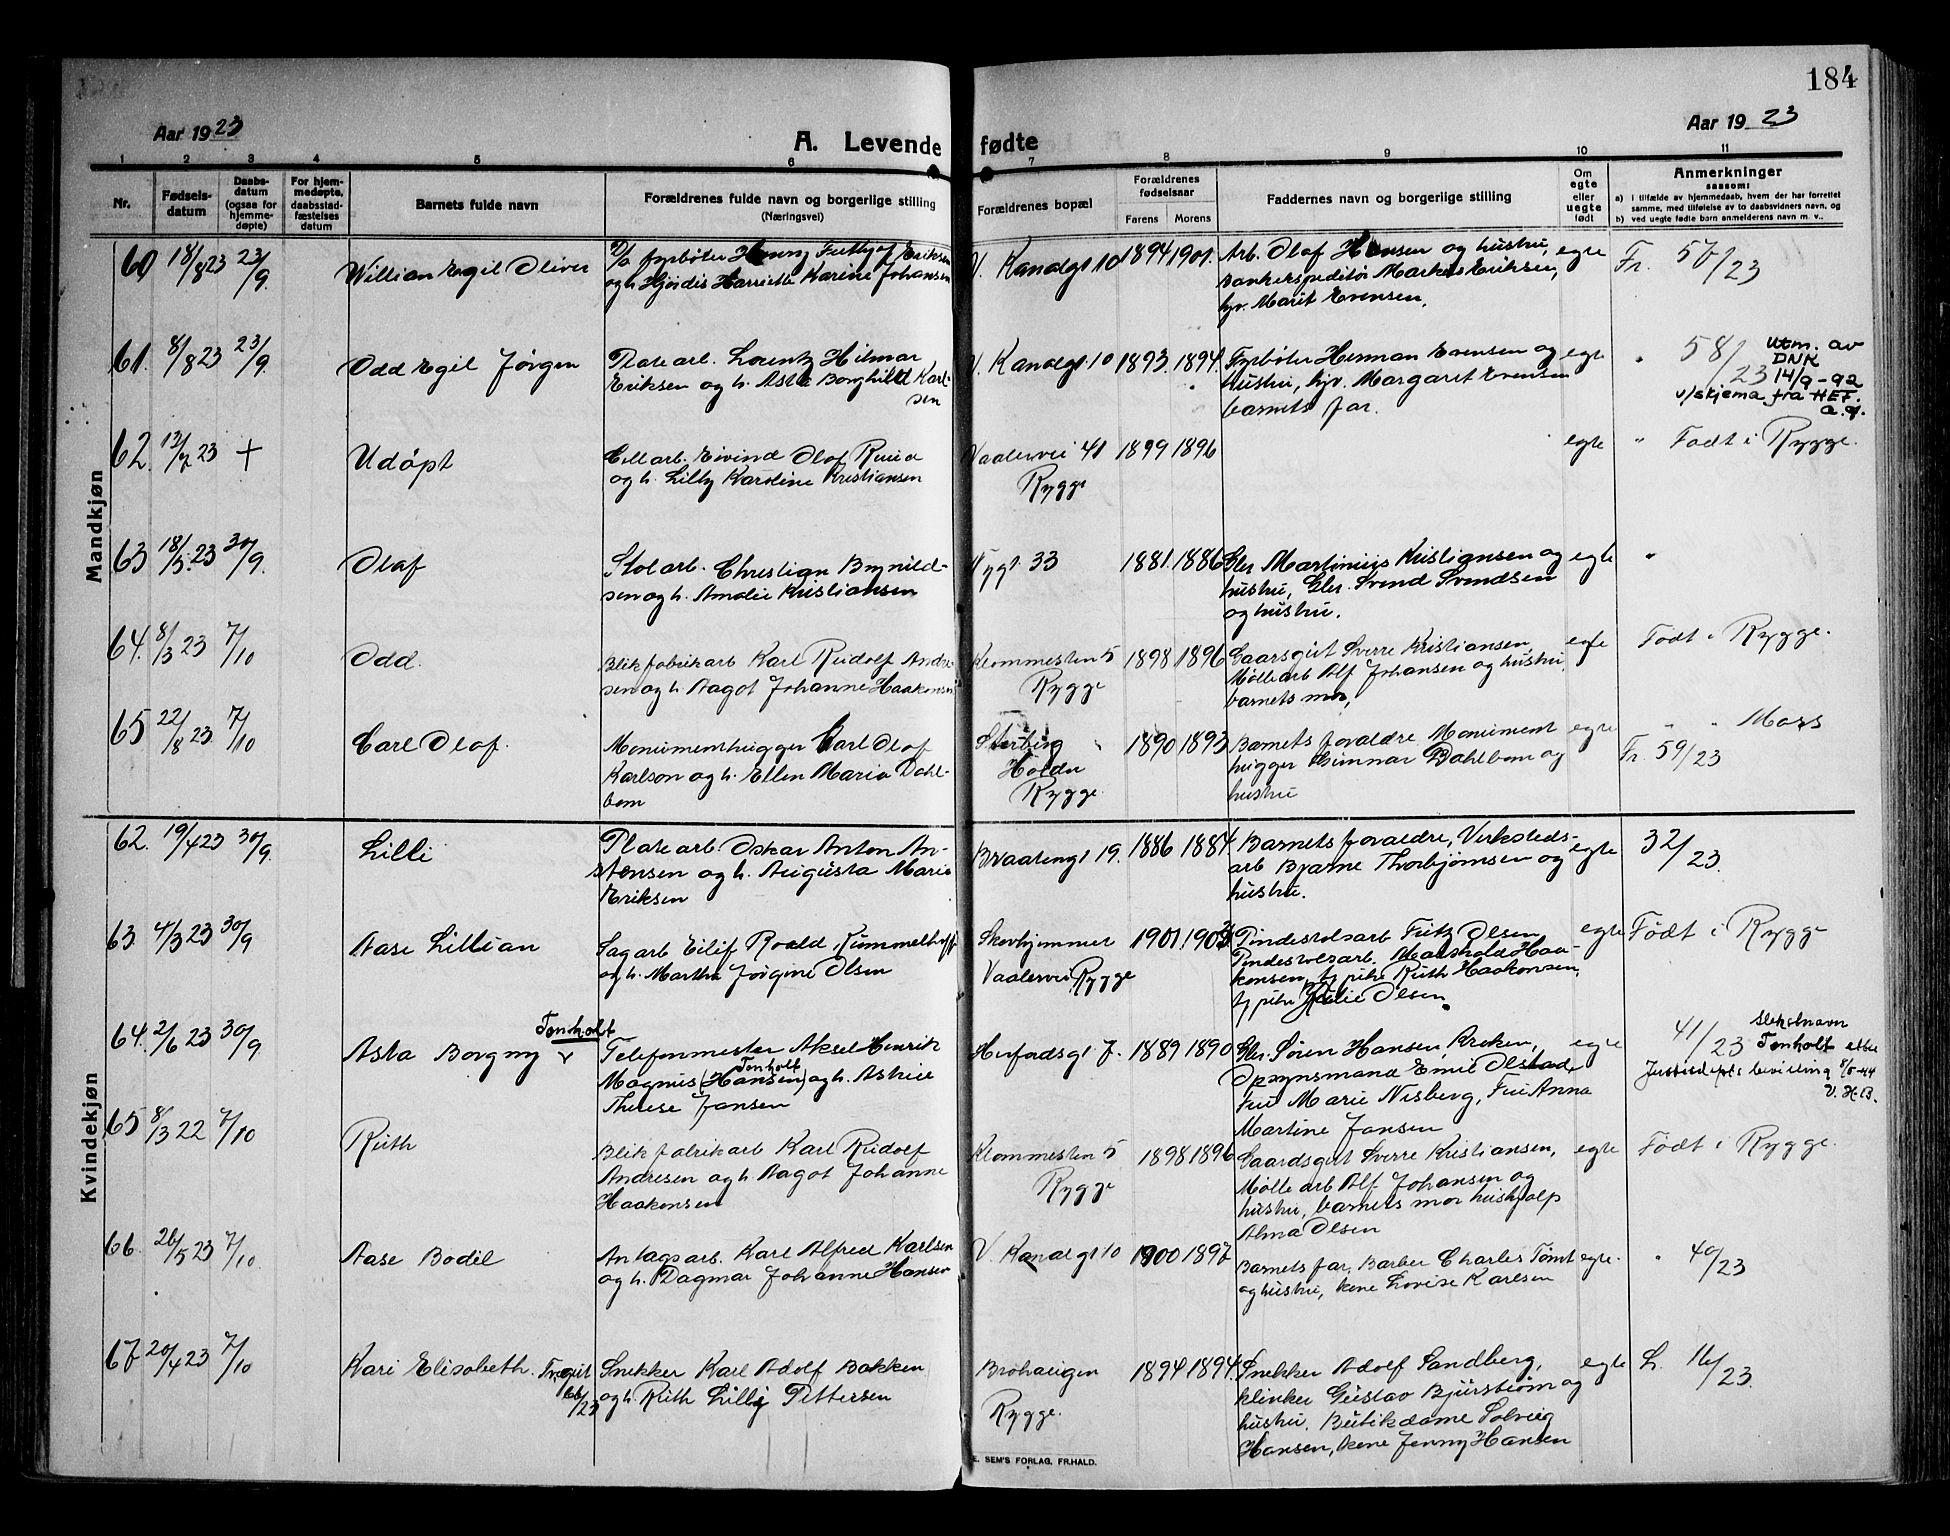 184
Aar 1923
A. Levende fødte
Aar 1923
1 2 3 4 5 6 7 8 9 10 11
Nr.
Fødsels-
datum
Daabs-
datum
(ogsaa for
hjemme-
døpte)
For hjem-
medøpte,
daabsstad-
fæstelses
datum
Barnets fulde navn
Forældrenes fulde navn og borgerlige stilling
(Næringsvei)
Forældrenes bopæl
Forældrenes
fødselsaar
Farens Morens
Faddernes navn og borgerlige stilling
Om
egte
eller
uegte
født
Anmerkninger
saasom:
a) i tilfælde av hjemmedaab, hvem der har forrettet
samme, med tilføielse av to daabsvidners navn, og
b) ved uegte fødte barn anmelderens navn m. v..
Mandkjøn
60 18/8 23 23/9
Willian Egil Oliver
fyrbøter Henny Eriksen
og h. Hjördis Harriette Karine Johansen
V. Kanalgt 10 1894 1901.
Arb. Olaf Hansen og hustru,
Markus Eriksen,
hjv. Marit Evensen.
egte
Fr. 57/23
61. 8/8 23 23/9
Odd Egil Jørgen
Plate arb. Lorentz Hilmar
Eriksen og h. Asta Borghild Karl-
sen
V. Kanalgt 10 1893. 1894.
Fyrbøter Herman Evensen og
hustru, hjv. Margaret Evensen
barnets far.
egte
" 58/23
Utm. av
DNK
14/9-92
v/skjema fra HEF.
a.g.
62. 13/7 23 +
Udøpt
Cell arb. Eivind Olaf Ruud
og h. Lilly Karoline Kristiansen
Vaalervei 41 1899 1896
Rygge
egte
" Født i Rygge.
63 18/5. 23 30/9.
Olaf
Stol arb. Christian Brynild-
sen og h. Amalie Kristiansen
33 1881. 1886
Gbr. Martinius Kristiansen og
hustru, Gbr. Svend Svendsen
og hustru.
egte
"
64. 8/3 23 7/10
Odd.
Blikfabrikarb Karl Rudolf Andre-
sen og h. Aagot Johanne Haakonsen
Klommesten 5 1898 1896
Rygge
Gaarsgut Sverre Kristiansen,
Mølle arb Alf Johansen og hustru,
barnets mor,
egte
Født i Rygge.
65 22/8 23. 7/10
Carl Olaf.
Monumenthugger Carl Olaf
Karlson og h. Ellen Maria Dahl-
bom
Høiden
Rygge.
1890 1893
Barnets foraldre Monument
hugger Gunnar Dahlbom og
hustru
egte
" " Moss
Fr. 59/23
Kvindekjøn
62. 19/4 23 30/9.
Lilli
Plate arb. Oskar Anton An-
stensen og h. Augusta Marie
Eriksen
Braatengt 19. 1886 1884.
Barnets foraldre, Verksteds-
arb Bjarne Thorbjørnsen og
hustru.
egte
32/23.
63. 4/3 23 30/9
Aase Lillian
Sagarb Eilif Roald Rummelhoff
og h. Martha Jørgine Olsen
Skovhjemmet
Vaalervei, Rygge
1901. 1903
Pindestolsarb Fritz Olsen
Pindestolsarb. Haa-
konsen, fj pike Ruth Haakonsen,
fj pike Julie Olsen.
egte
Født i Rygge
64. 2/6 23 30/9
Asta Borgny Tonholt
Telefonmester Aksel Henrik
Magnus (Hansen) Tonholt og h. Astrid
Therese Jansen
Herfordsgt 7. 1889 1890
Gbr. Sören Hansen Kroken,
Opsynsmand Emil Olstad,
Fru Marie Nisberg, Fru Anna
Martine Jansen
egte
41/23
slektsnavn
Tonholt etter
Justisdepts bevilling 9/5-44
V. H.B.
65 8/3 22 7/10
Ruth
Blikfabrikarb Karl Rudolf
Andresen og h. Aagot Johanne
Haakonsen
Klommesten 5 1898 1896
Rygge
Gaardsgut Sverre Kristiansen,
Mølle arb Alf Johansen og
hustru, barnets mor hushjælp
Alma Olsen
egte
Født i Rygge.
66. 26/5 23 7/10.
Aase Bodil
Anlagsarb. Karl Alfred Karlsen
og h. Dagmar Johanne Hansen
V. Kanalgt 10 1900 1897
Barnets far, Barber Charles Tømt
og hustru, kone Lovise Karlsen
egte.
" 40/23
67 20/4 23 7/10
Kari Elisabeth.
66/23
Snekker Karl Adolf Bakken
og h. Ruth Lilly Pettersen
Brohaugen
Rygge.
1894 1894.
Snekker Adolf Sandberg,
klinker Gustav Bjurstrøm og
hustru, Butikdame Solveig
Hansen, kone Jenny Hansen
egte
L. 16/23.
E. SEM'S FORLAG, FR.HALD.